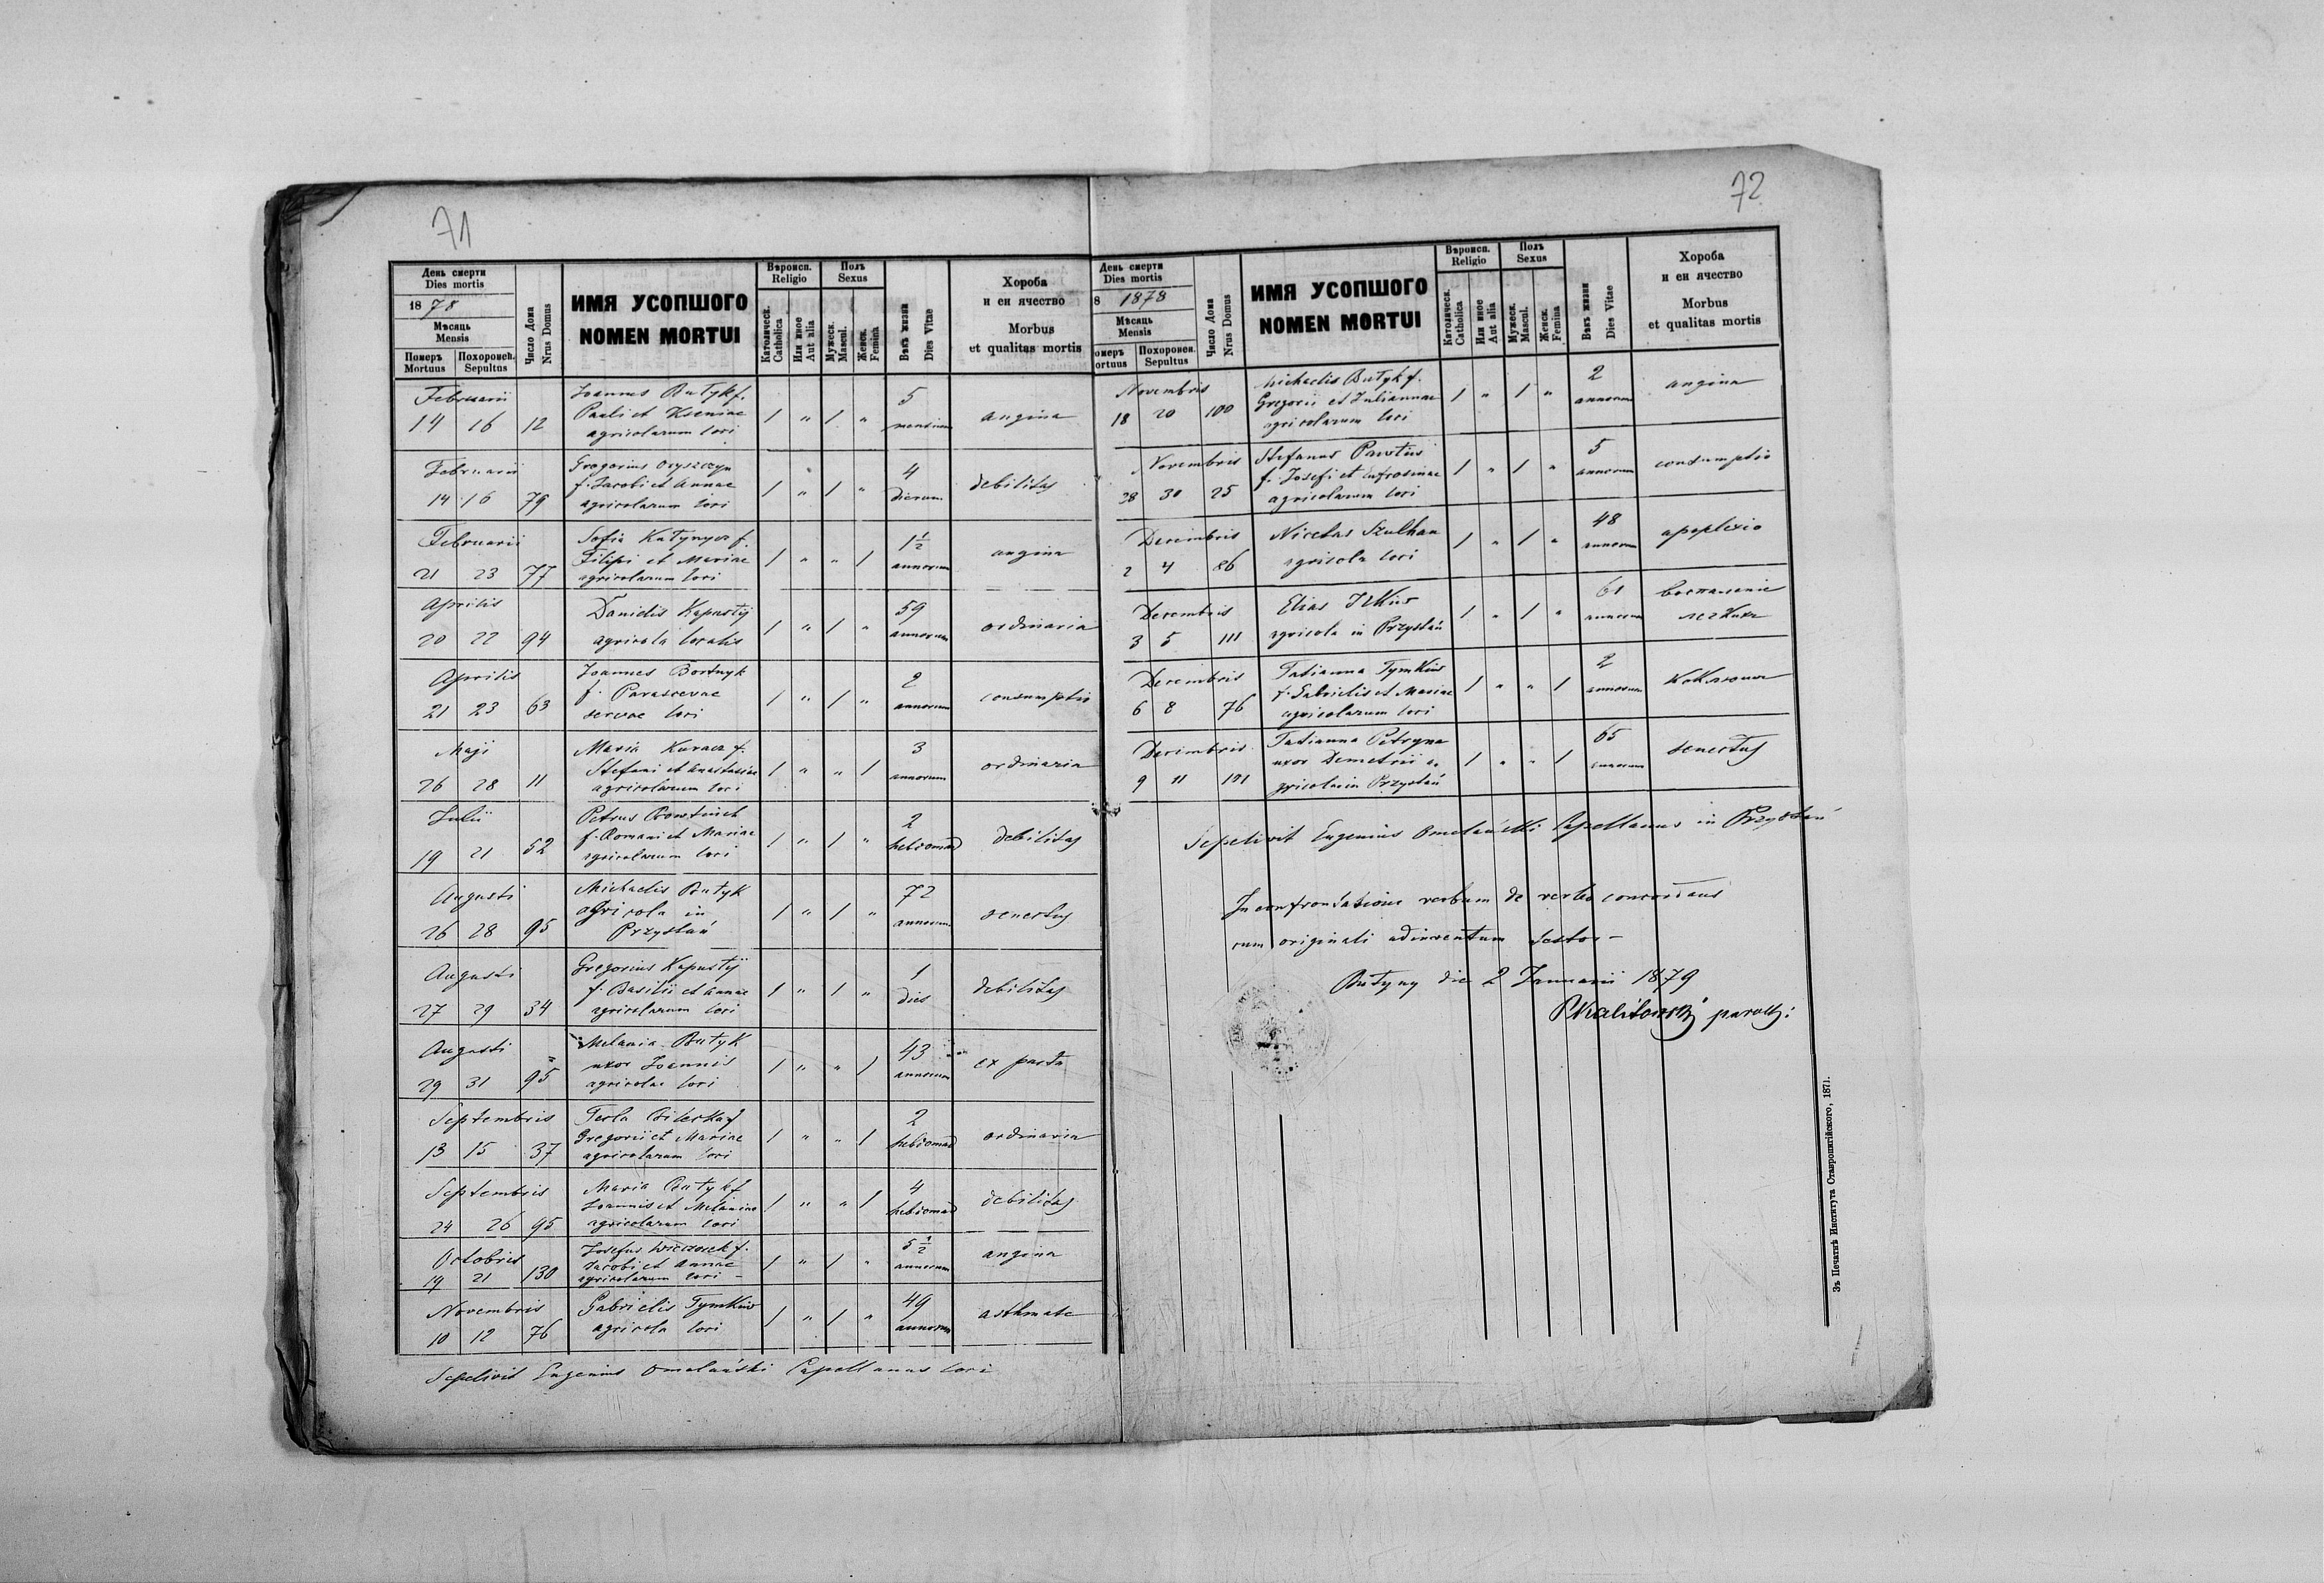 71
День смерти
Dies mortis
1878
Мѣсяць
Mensis
Померъ
Mortuus
Похоронен.
Sepultus
Число Дома
Nrus Domus
ИМЯ УСОПШОГО
NOMEN MORTUI
Вѣроисп.
Religio
Католическ.
Catholica
Или иное
Aut alia
Полъ
Sexus
Мужеск.
Mascul.
Женск.
Femina
Вѣкъ жизни
Dies Vitae
Хороба
и еи ячество
Morbus
et qualitas mortis
Februarii
14 16 12
Joannes Butyk f.
Pauli et Kseniae
agricolarum loci
1 " 1 "
5
mensium
angina
Februarii
14 16 79
Gregorius Oryszczyn
f. Jacobi et Annae
agricolarum loci
1 " 1 "
4
dierum
debilitas
Februarii
21 23 77
Sofia f.
Filipi et Mariae
agricolarum loci
1 " " 1
1 1/2
annorum
angina
Aprilis
20 22 94
Danielis Kapustij
agricola localis
1 " 1 "
59
annorum
ordinaria
Aprilis
21 23 63
Joannes Bortnyk
f. Parascevae
servae loci
1 " 1 "
2
annorum
consumptio
Maji
26 28 11
Maria f.
Stefani et Anastasiae
agricolarum loci
1 " " 1
3
annorum
ordinaria
Julii
19 21 52
Petrus
f. Romani et Mariae
agricolarum loci
1 " 1 "
2
hebdomad
debilitas
Augusti
26 28 95
Michaelis Butyk
agricola in
Przystań
1 " 1 "
72
annorum
senectus
Augusti
27 29 34
Gregorius Kapustij
f. Basilii et Annae
agricolarum loci
1 " 1 "
1
dies
debilitas
Augusti
29 31 95
Melania Butyk
uxor Joannis
agricolae loci
1 " " 1
43
annorum
ex partu
Septembris
13 15 37
Tecla f
Gregorii et Mariae
agricolarum loci
1 " " 1
2
hebdomad
ordinaria
Septembris
24 26 95
Maria Butyk f
Joannis et Melaniae
agricolarum loci
1 " " 1
4
hebdomad
debilitas
Octobris
19 21 130
Josefus f.
Jacobi et Annae
agricolarum loci
1 " 1 "
5 1/2
annorum
angina
Novembris
10 12 76
Gabrielis Tymkiw
agricola loci
1 " 1 "
49
annorum
asthmate
Sepelivit Eugenius Omelański Capellanus loci
72
День смерти
Dies mortis
8 1878
Мѣсяць
Mensis
омеръ
ortuus
Похоронен.
Sepultus
Число Дома
Nrus Domus
ИМЯ УСОПШОГО
NOMEN MORTUI
Вѣроисп.
Religio
Католическ.
Catholica
Или иное
Aut alia
Полъ
Sexus
Мужеск.
Mascul.
Женск.
Femina
Вѣкъ жизни
Dies Vitae
Хороба
и еи ячество
Morbus
et qualitas mortis
Novembris
18 20 100
Michaelis Butyk f.
Gregorii et Juliannae
agricolarum loci
1 " 1 "
2
annorum
angina
Novembris
28 30 25
Stefanus
f. Josefi et Eufrosinae
agricolarum loci
1 " 1 "
5
annorum
consumptio
Decembris
2 4 86
Nicetas Szulhan
agricola loci
1 " 1 "
48
annorum
apoplexio
Decembris
3 5 111
Elias Ilkiw
agricola in Przystań
1 " 1 "
61
annorum
воспаленіе
легкихъ
Decembris
6 8 76
Tatianna Tymkiw
f. Gabrielis et Mariae
agricolarum loci
1 " " 1
2
annorum
коклюшъ
Decembris
9 11 121
Tatianna Petryna
uxor Demetrii a-
gricolae in Przystań
1 " " 1
65
annorum
senectus
Sepelivit Eugenius Omelański Capellanus in Przystań
In confrontatione verbum de verbo concordans
cum originali adinventum testor –
Butyny die 2 Januarii 1879
paroch:
Зъ Печатнѣ Института Ставропигійского, 1871.